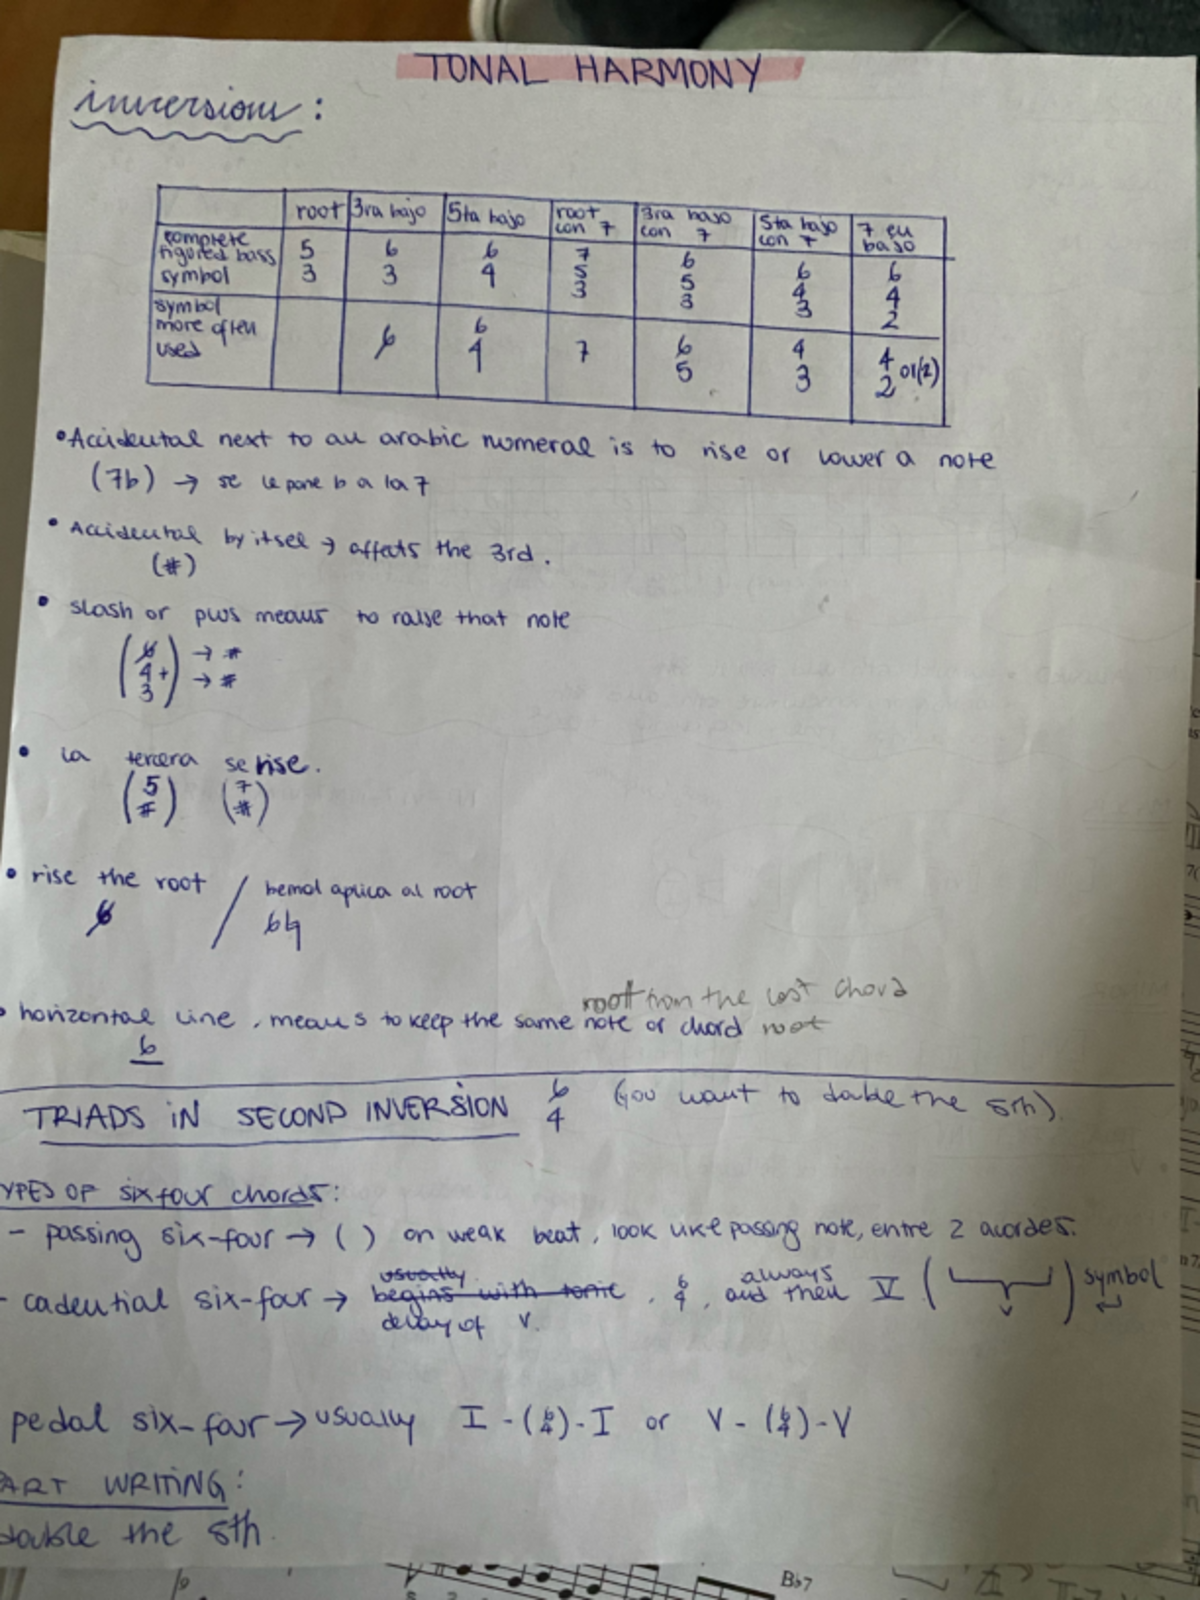 TONAL HARMONY
inversions:
root 3ra bajo 5ta bajo root con 7 3ra bajo con 7 5ta bajo con 7 7 en bajo
complete figured bass symbol 5 3 6 3 6 4 7 5 3 6 5 3 6 4 3 6 4 2
symbol more often used 6 6 4 7 6 5 4 3 4 2 or (2)
• Accidental next to an arabic numeral is to rise or lower a note
(7b) → se le pone b a la 7
• Accidental by itself → affects the 3rd.
(#)
• slash or plus means to raise that note
(6 → #
4+ → #
3)
• la tercera se rise.
(5 #) (7 #)
• rise the root / bemol aplica al root
6 6♮
root from the last chord
• horizontal line, means to keep the same note or chord root
6
TRIADS IN SECOND INVERSION 6 4 (you want to double the 5th)
YPES OF six four chords:
- passing six-four → ( ) on weak beat, look like passing note, entre 2 acordes.
usually always
- cadential six-four → begins with tonic, 6 4, and then V ( V ) symbol
delay of V.
pedal six-four → usually I - (6 4) - I or V - (6 4) - V
ART WRITING:
double the 5th.
Bb7